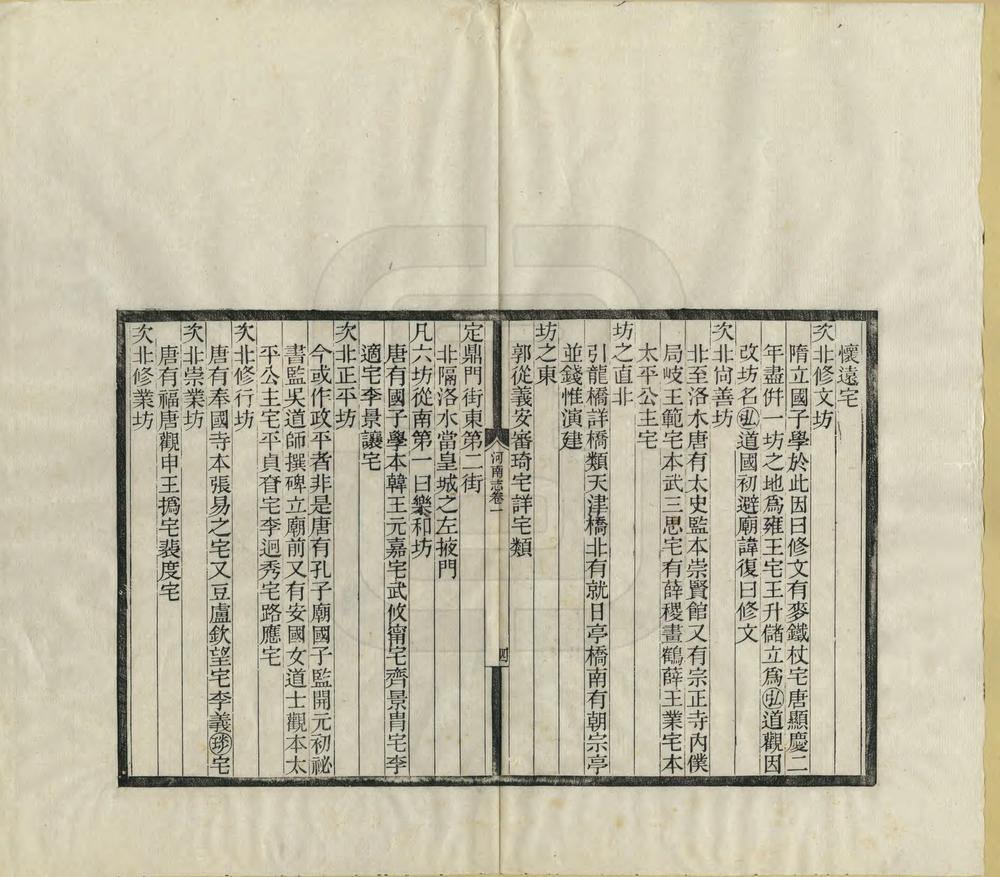 懷遠宅
次北修文坊
隋立國子學於此因曰修文有麥鐵杖宅唐顯慶二
年盡併一坊之地爲雍王宅王升儲立爲弘道觀因
改坊名弘道國初避廟諱復曰修文
次北尙善坊
北至洛水唐有太史監本崇賢館又有宗正寺內僕
局岐王範宅本武三思宅有薛稷畫鶴薛王業宅本
太平公主宅
坊之直北
引龍橋詳橋類天津橋北有就日亭橋南有朝宗亭
並錢惟演建
坊之東
郭從義安審琦宅詳宅類
河南志卷一
四
定鼎門街東第二街
北隔洛水當皇城之左掖門
凡六坊從南第一曰樂和坊
唐有國子學本韓王元嘉宅武攸甯宅齊景胄宅李
適宅李景讓宅
次北正平坊
今或作政平者非是唐有孔子廟國子監開元初祕
書監吳道師撰碑立廟前又有安國女道士觀本太
平公主宅平貞眘宅李迥秀宅路應宅
次北修行坊
唐有奉國寺本張易之宅又豆盧欽望宅李義琰宅
次北崇業坊
唐有福唐觀申王撝宅裴度宅
次北修業坊